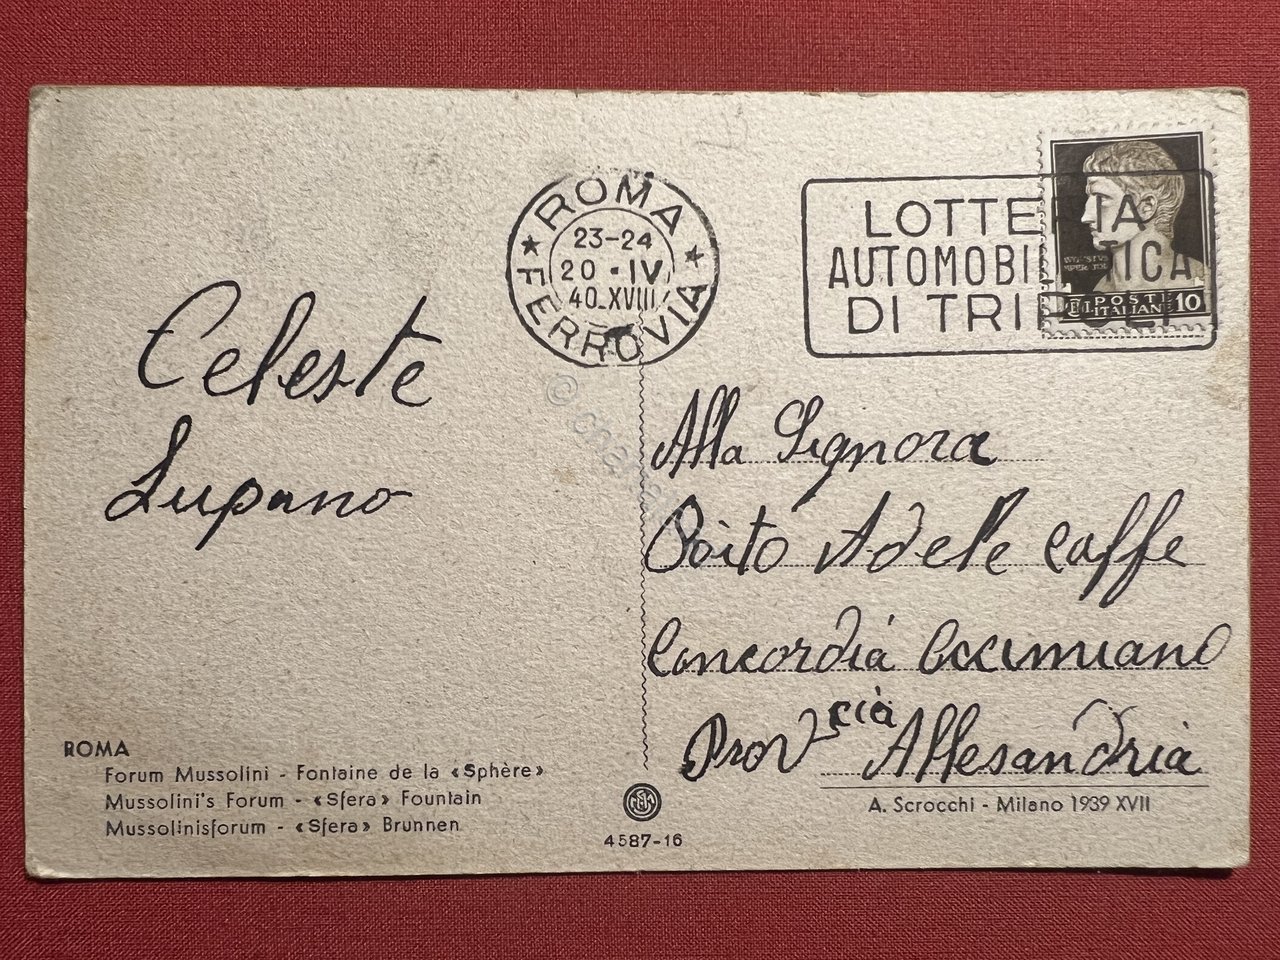 ROMA
FERROVIA
23-24
20·IV
40_XVIII
LOTTERIA
AUTOMOBILISTICA
DI TRIPOLI
POSTE
ITALIANE 10
Celeste
Lupano
Alla Signora
Poito Adele Caffe
Concordia Occimiano
Provcia Allesandria
ROMA
Forum Mussolini - Fontaine de la «Sphère»
Mussolini's Forum - «Sfera» Fountain
Mussolinisforum - «Sfera» Brunnen
4587-16
A. Scrocchi - Milano 1939 XVII